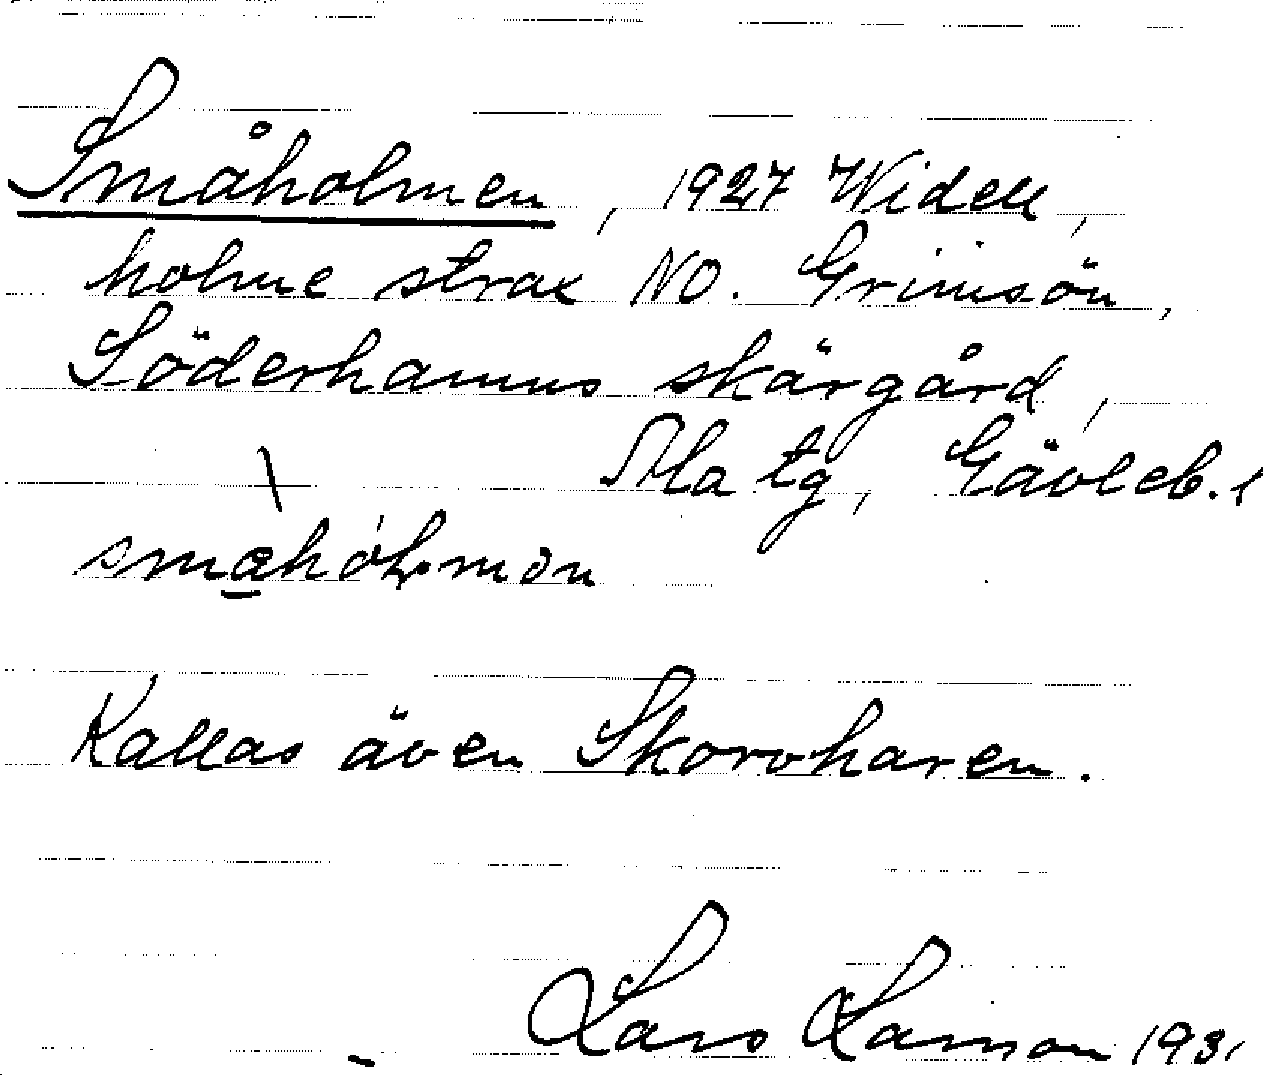 Småholmen, 1927 Widell,
holme strax NO. Grimsön,
Söderhamns skärgård,
Ala tg, Gävleb. l
Kallas även Skorvharen.
Lars Larsson 1931